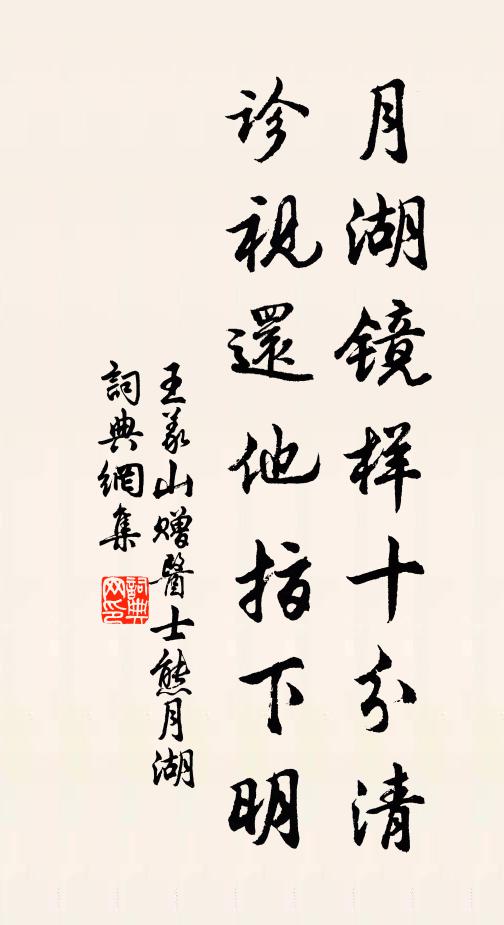 月湖镜样十分清
診視還他指下明
王義山贈醫士熊月湖
詞典網集
詞典网印